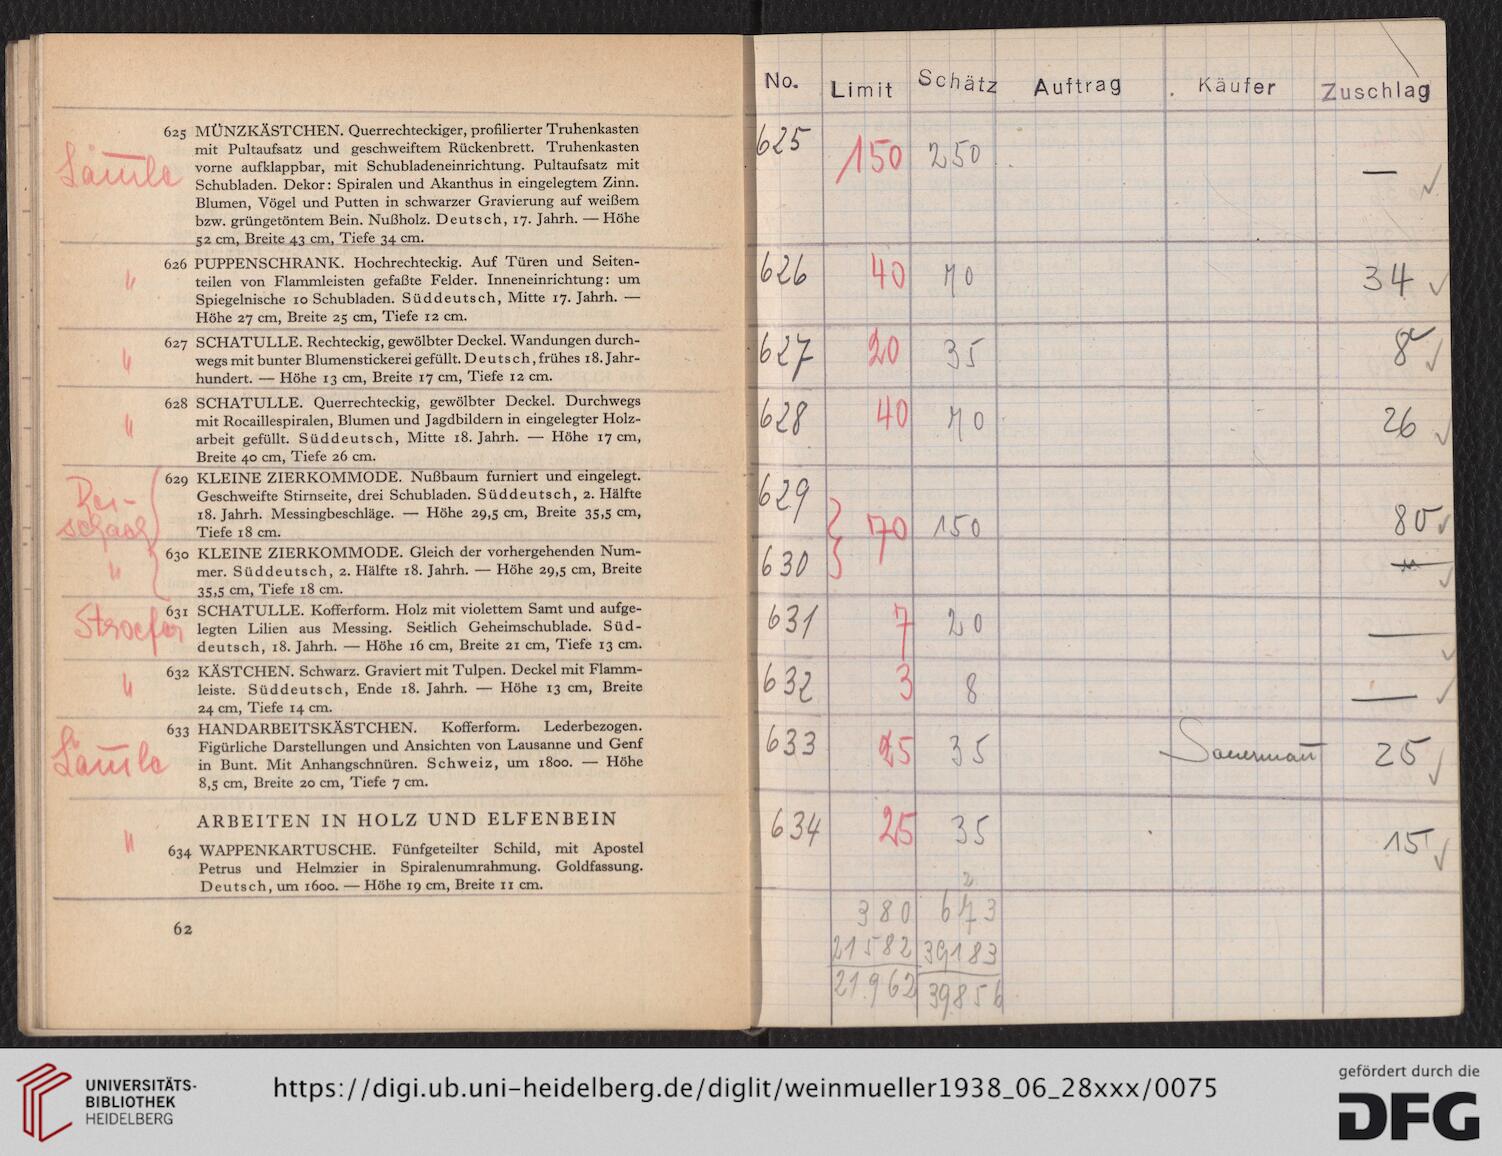 625 MÜNZKÄSTCHEN. Querrechteckiger, profilierter Truhenkasten
mit Pultaufsatz und geschweiftem Rückenbrett. Truhenkasten
vorne aufklappbar, mit Schubladeneinrichtung. Pultaufsatz mit
Schubladen. Dekor: Spiralen und Akanthus in eingelegtem Zinn.
Blumen, Vögel und Putten in schwarzer Gravierung auf weißem
bzw. grüngetöntem Bein. Nußholz. Deutsch, 17. Jahrh. — Höhe
52 cm, Breite 43 cm, Tiefe 34 cm.
"
626 PUPPENSCHRANK. Hochrechteckig. Auf Türen und Seiten-
teilen von Flammleisten gefaßte Felder. Inneneinrichtung: um
Spiegelnische 10 Schubladen. Süddeutsch, Mitte 17. Jahrh. —
Höhe 27 cm, Breite 25 cm, Tiefe 12 cm.
"
627 SCHATULLE. Rechteckig, gewölbter Deckel. Wandungen durch-
wegs mit bunter Blumenstickerei gefüllt. Deutsch, frühes 18. Jahr-
hundert. — Höhe 13 cm, Breite 17 cm, Tiefe 12 cm.
"
628 SCHATULLE. Querrechteckig, gewölbter Deckel. Durchwegs
mit Rocaillespiralen, Blumen und Jagdbildern in eingelegter Holz-
arbeit gefüllt. Süddeutsch, Mitte 18. Jahrh. — Höhe 17 cm,
Breite 40 cm, Tiefe 26 cm.
629 KLEINE ZIERKOMMODE. Nußbaum furniert und eingelegt.
Geschweifte Stirnseite, drei Schubladen. Süddeutsch, 2. Hälfte
18. Jahrh. Messingbeschläge. — Höhe 29,5 cm, Breite 35,5 cm,
Tiefe 18 cm.
"
630 KLEINE ZIERKOMMODE. Gleich der vorhergehenden Num-
mer. Süddeutsch, 2. Hälfte 18. Jahrh. — Höhe 29,5 cm, Breite
35,5 cm, Tiefe 18 cm.
Stroefer
631 SCHATULLE. Kofferform. Holz mit violettem Samt und aufge-
legten Lilien aus Messing. Seitlich Geheimschublade. Süd-
deutsch, 18. Jahrh. — Höhe 16 cm, Breite 21 cm, Tiefe 13 cm.
"
632 KÄSTCHEN. Schwarz. Graviert mit Tulpen. Deckel mit Flamm-
leiste. Süddeutsch, Ende 18. Jahrh. — Höhe 13 cm, Breite
24 cm, Tiefe 14 cm.
633 HANDARBEITSKÄSTCHEN. Kofferform. Lederbezogen.
Figürliche Darstellungen und Ansichten von Lausanne und Genf
in Bunt. Mit Anhangschnüren. Schweiz, um 1800. — Höhe
8,5 cm, Breite 20 cm, Tiefe 7 cm.
ARBEITEN IN HOLZ UND ELFENBEIN
"
634 WAPPENKARTUSCHE. Fünfgeteilter Schild, mit Apostel
Petrus und Helmzier in Spiralenumrahmung. Goldfassung.
Deutsch, um 1600. — Höhe 19 cm, Breite 11 cm.
62
No. Limit Schätz Auftrag Käufer Zuschlag
625 150 250 —
626 40 70 34
627 20 35 8
628 40 70 26
629 70 150 80
630
631 7 20 —
632 3 8 —
633 25 35 25
634 25 35 15
380 673
21582 39183
21962 39856
UNIVERSITÄTS-
BIBLIOTHEK
HEIDELBERG
https://digi.ub.uni-heidelberg.de/diglit/weinmueller1938_06_28xxx/0075
gefördert durch die
DFG